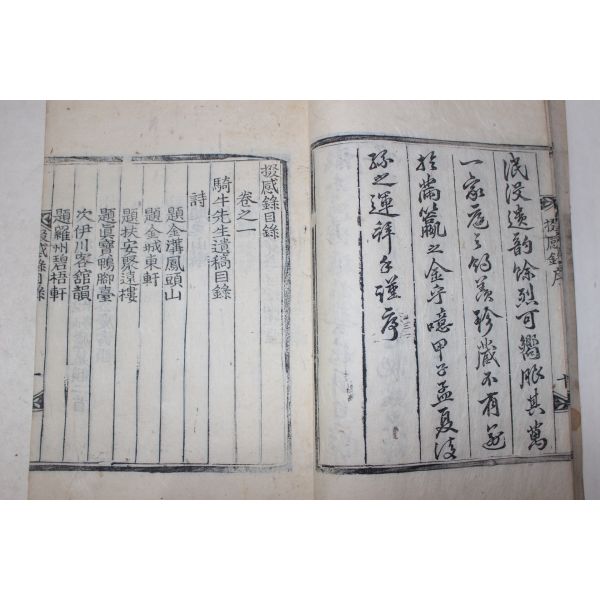 泯沒遺韵餘烈可嚮脉其萬
一家庭之的羨珍藏不有
於滿籯之金乎噫甲子孟夏
孫之運拜手謹序
掇感錄序
掇感錄目錄
卷之一
騎牛先生遺稿目錄
詩
題金溝鳳頭山
題金城東軒
題扶安聚遠樓
題眞寶鴨腳臺
次伊川客舘韻
題羅州碧梧軒
掇感錄目錄
一